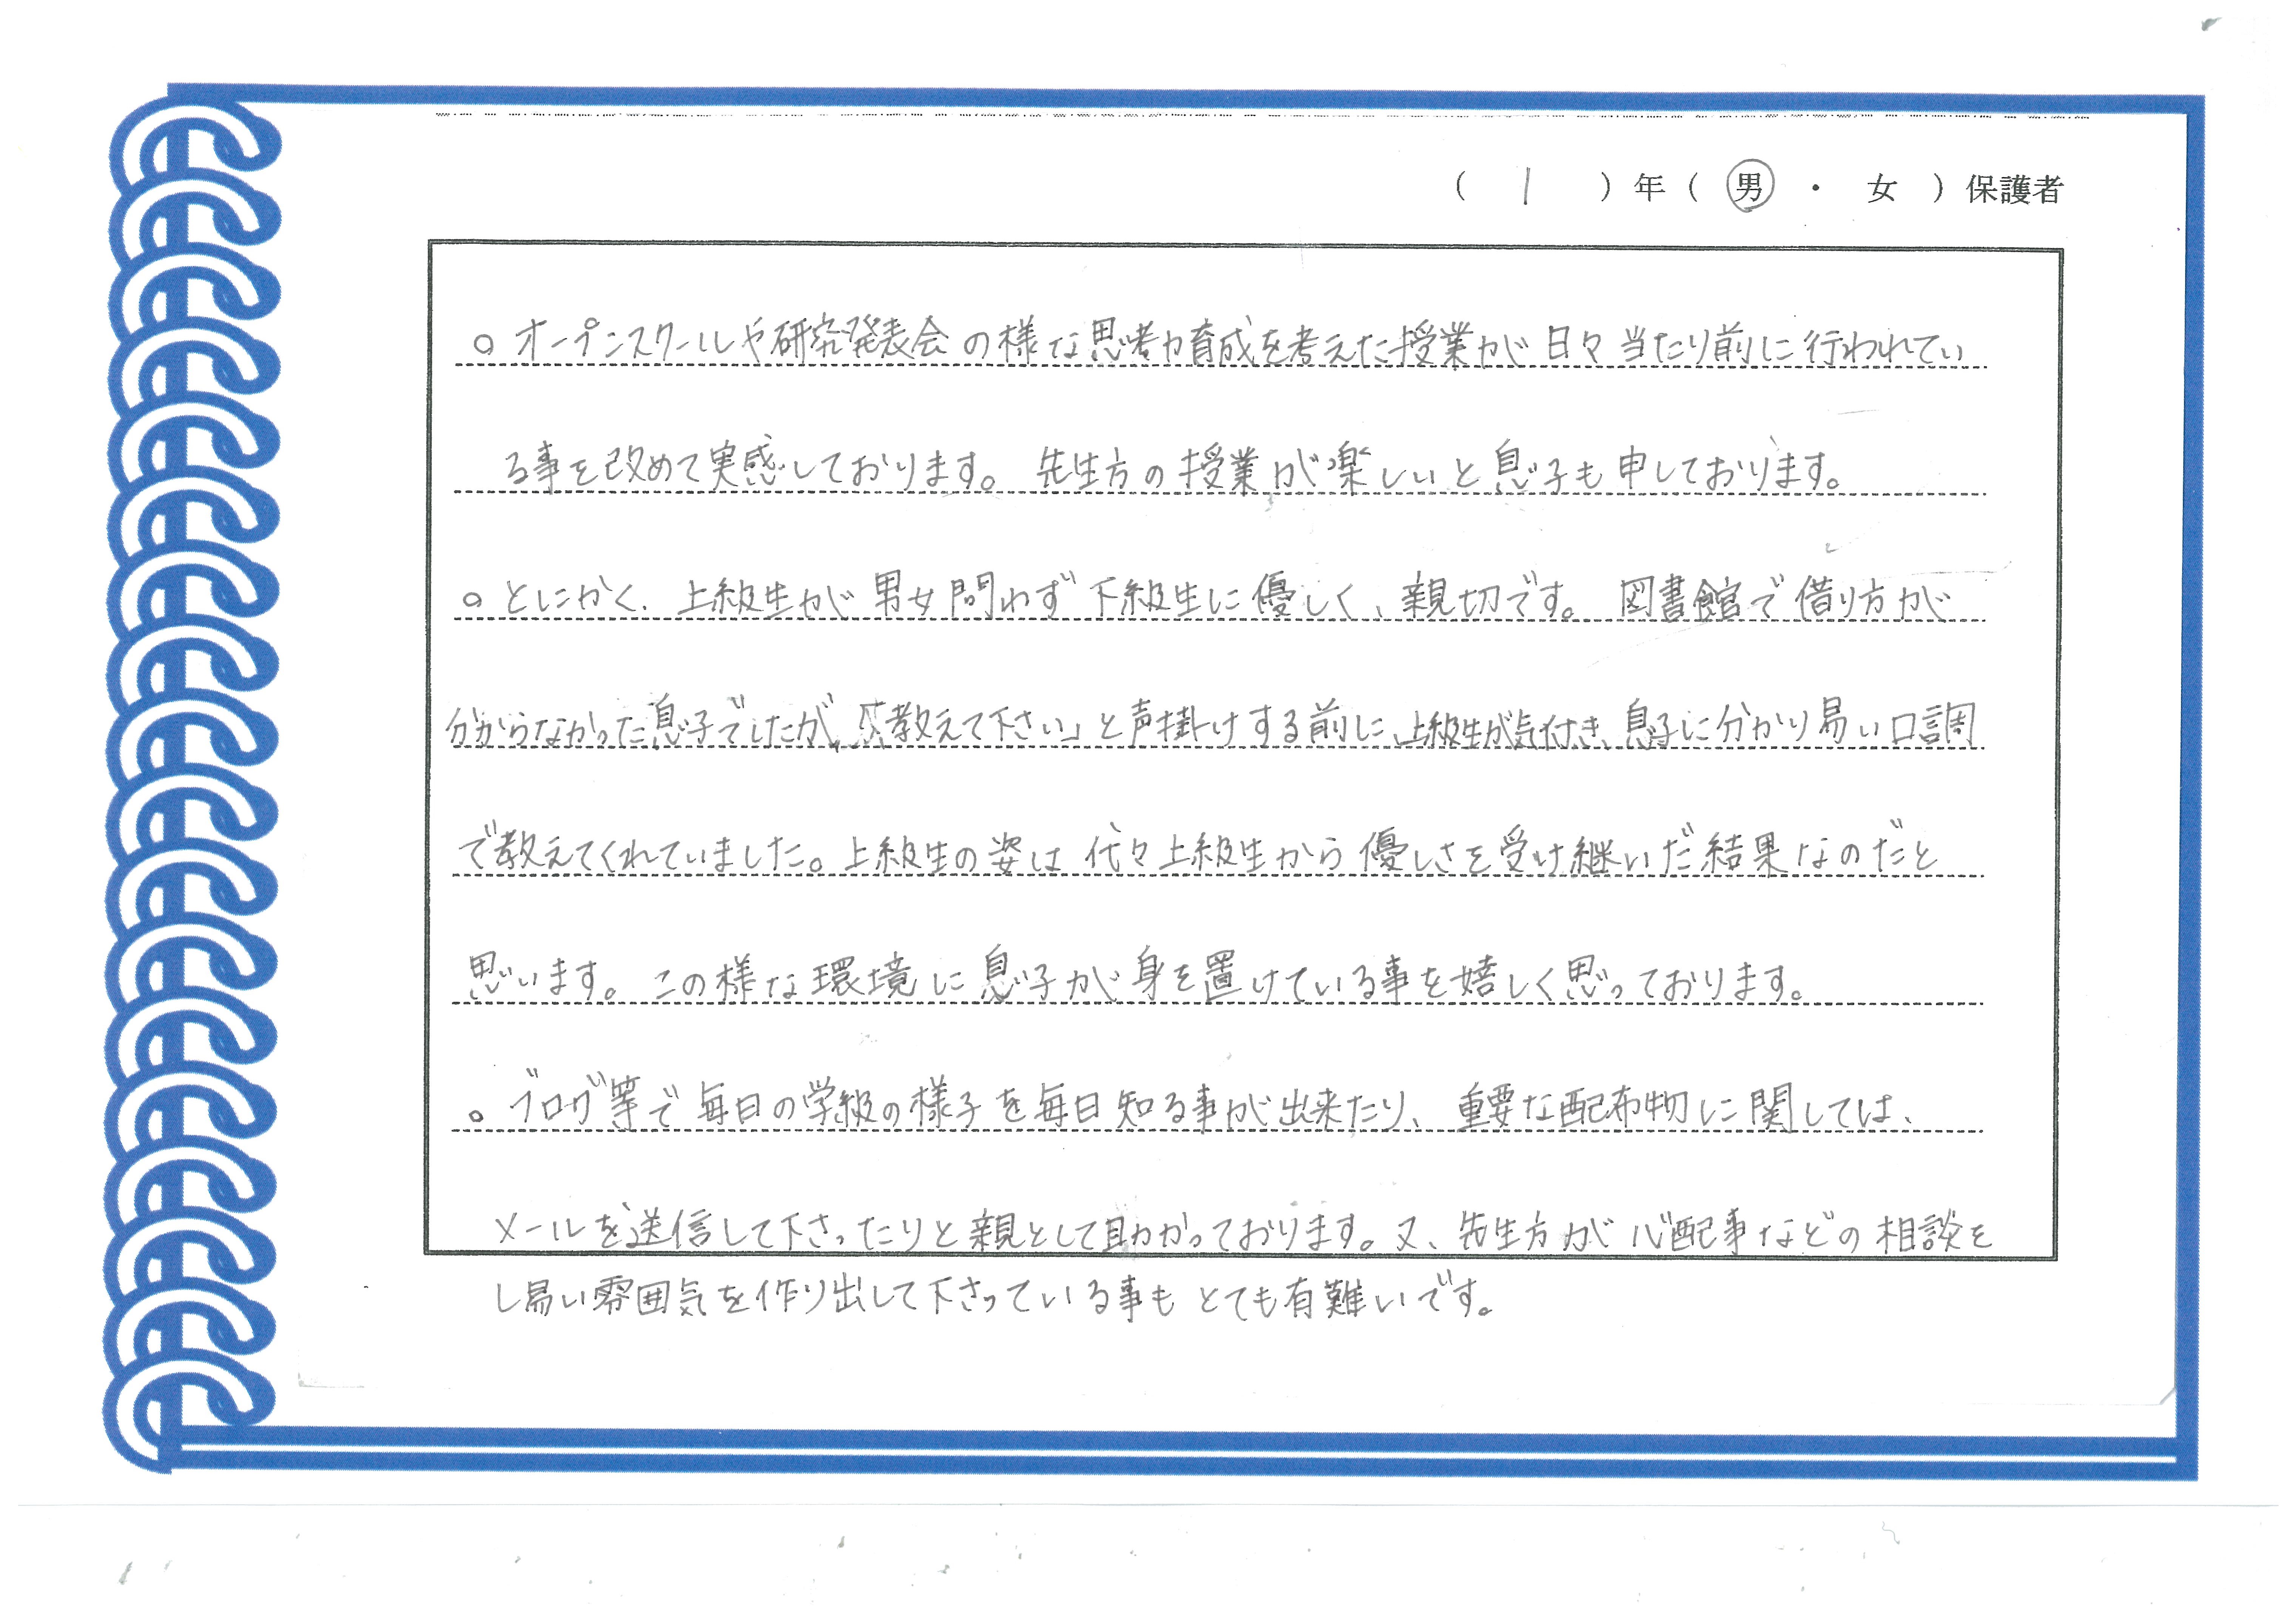 ( 1 ) 年 ( 男 ・ 女 ) 保護者
○ オープンスクールや研究発表会の様な思考力育成を考えた授業が日々当たり前に行われてい
る事を改めて実感しております。先生方の授業が楽しいと息子も申しております。
○ とにかく、上級生が男女問わず下級生に優しく、親切です。図書館で借り方が
分からなかった息子でしたが、「教えて下さい」と声掛けする前に、上級生が気付き、息子に分かり易い口調
で教えてくれていました。上級生の姿は代々上級生から優しさを受け継いだ結果なのだと
思います。この様な環境に息子が身を置けている事を嬉しく思っております。
○ ブログ等で毎日の学級の様子を毎日知る事が出来たり、重要な配布物に関しては、
メールを送信して下さったりと親として助かっております。又、先生方が心配事などの相談を
し易い雰囲気を作り出して下さっている事もとても有難いです。